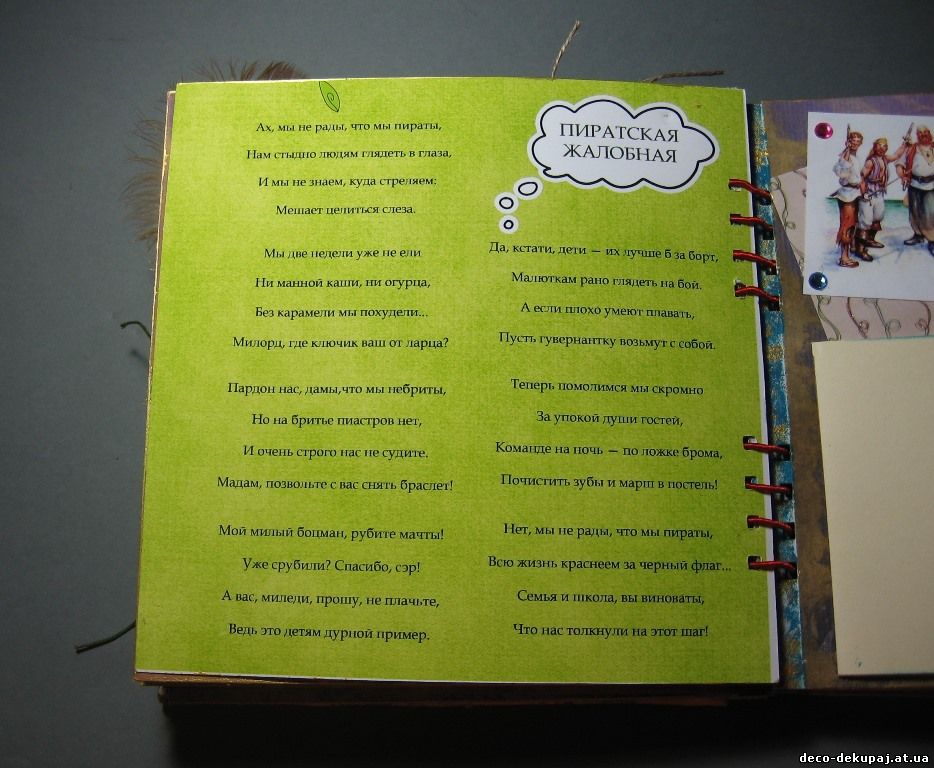 ПИРАТСКАЯ
ЖАЛОБНАЯ
Ах, мы не рады, что мы пираты,
Нам стыдно людям глядеть в глаза,
И мы не знаем, куда стреляем:
Мешает целиться слеза.
Мы две недели уже не ели
Ни манной каши, ни огурца,
Без карамели мы похудели...
Милорд, где ключик ваш от ларца?
Пардон нас, дамы,что мы небриты,
Но на бритье пиастров нет,
И очень строго нас не судите.
Мадам, позвольте с вас снять браслет!
Мой милый боцман, рубите мачты!
Уже срубили? Спасибо, сэр!
А вас, миледи, прошу, не плачьте,
Ведь это детям дурной пример.
Да, кстати, дети — их лучше б за борт,
Малюткам рано глядеть на бой.
А если плохо умеют плавать,
Пусть гувернантку возьмут с собой.
Теперь помолимся мы скромно
За упокой души гостей,
Команде на ночь — по ложке брома,
Почистить зубы и марш в постель!
Нет, мы не рады, что мы пираты,
Всю жизнь краснеем за черный флаг...
Семья и школа, вы виноваты,
Что нас толкнули на этот шаг!
deco-dekupaj.at.ua